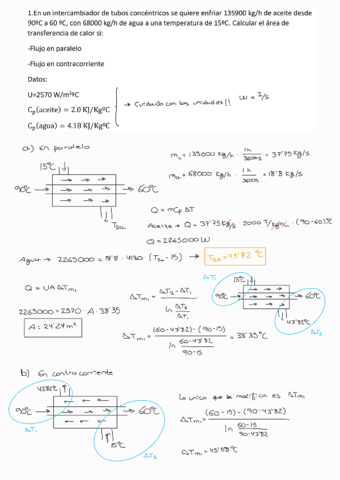 1.En un intercambiador de tubos concéntricos se quiere enfriar 135900 kg/h de aceite desde
90ºC a 60 ºC, con 68000 kg/h de agua a una temperatura de 15ºC. Calcular el área de
transferencia de calor si:
-Flujo en paralelo
-Flujo en contracorriente
Datos:
U=2570 W/m²ºC
Cp(aceite) = 2.0 KJ/KgºC
Cp(agua) = 4.18 KJ/KgºC
→ Cuidado con las unidades!!
W = J/s
a) En paralelo
15ºC
90ºC
60ºC
Tsa
ṁc = 135000 kg/h · 1h/3600s = 37'75 kg/s
ṁa = 68000 kg/h · 1h/3600s = 18'8 kg/s
Q = mCp ΔT
Aceite → Q = 37'75 kg/s · 2000 J/kgºC · (90-60)ºC
Q = 2265000 W
Agua → 2265000 = 18'8 · 4180 · (Tsa - 15) → Tsa = 43'82 ºC
Q = UA ΔTml
2265000 = 2570 · A · 38'35
A = 24'24 m²
ΔTml = ΔT2 - ΔT1 / ln ΔT2/ΔT1
ΔT1
15ºC
90ºC
60ºC
43'82ºC
ΔT2
ΔTml = (60-43'82) - (90-15) / ln 60-43'82/90-15 = 38'35ºC
b) En contracorriente
43'82ºC
90ºC
60ºC
ΔT1
15ºC
ΔT2
Lo unico que se modifica es ΔTml
ΔTml = (60-15) - (90-43'82) / ln 60-15/90-43'82
ΔTml = 45'58ºC